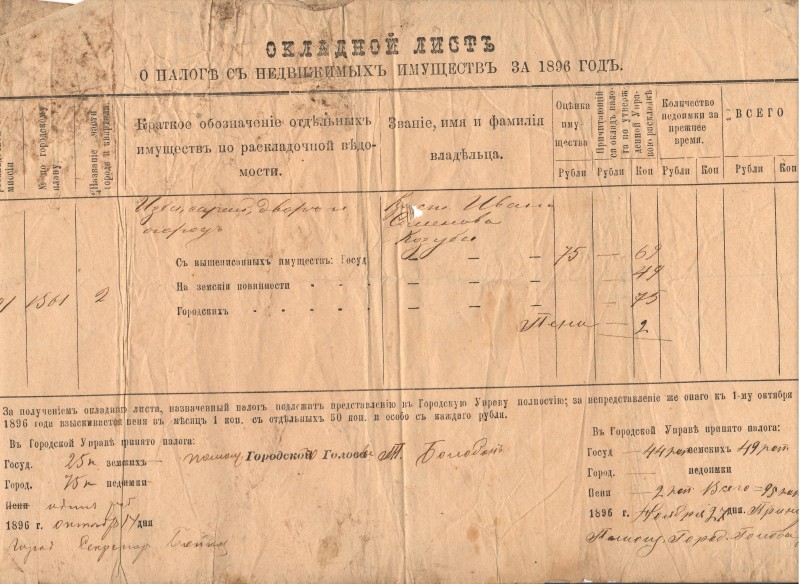 ОКЛАДНОЙ ЛИСТЪ
О НАЛОГѢ СЪ НЕДВИЖИМЫХЪ ИМУЩЕСТВЪ ЗА 1896 ГОДЪ.
№ по городскому плану
Названіе части города и квартала
Краткое обозначеніе отдѣльныхъ
имуществъ по раскладочной вѣдо-
мости.
Званіе, имя и фамилія
владѣльца.
Оцѣнка
иму-
щества
Рубли
Причитающій
ся окладъ нало-
га по утверж-
денной Упра-
вою раскладкѣ
Рубли Коп
Количество
недоимки за
прежнее
время.
Рубли Коп
ВСЕГО
Рубли Коп
Изба, сарай, дворъ и
огородъ
Ивана
Семенова
Козуба
Съ вышеписанныхъ имуществъ: Госуд. — — — 75 — 69
На земскія повинности - - - — — — — 49
1561 2 Городскихъ - - - - - — — — — 75
Пени — 2
За полученіемъ окладнаго листа, назначенный налогъ подлежатъ представленію въ Городскую Управу полностію; за непредставленіе же онаго къ 1-му октября
1896 года взыскивается пеня въ мѣсяцъ 1 коп. съ отдѣльныхъ 50 коп. и особо съ каждаго рубля.
Въ Городской Управѣ принято налога:
Госуд. 25 к земскихъ —
Город. 75 к недоимки
Пени один руб
1896 г. октября 17 дня
Город Секретарь
Городской Голова
Въ Городской Управѣ принято налога:
Госуд — 44 коп земскихъ 49 коп
Город. — недоимки
Пени — 2 коп Всего = 95 коп
1896 г. Ноября 27 дня.
Помощ. Город. Головы